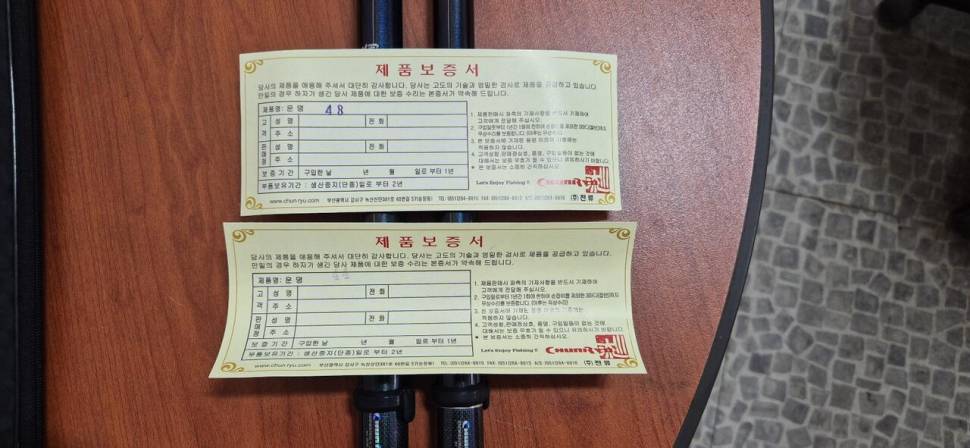 제품보증서
당사의 제품을 애용해 주셔서 대단히 감사합니다. 당사는 고도의 기술과 엄밀한 검사로 제품을 공급하고 있습니다
만일의 경우 하자가 생긴 당사 제품에 대한 보증 수리는 본증서가 약속해 드립니다.
제품명: 운명 48
고객
성명
전화
주소
판매점
성명
전화
주소
보증기간 구입한 날 년 월 일로 부터 1년
부품보유기간 : 생산중지(단종)일로 부터 2년
1. 제품판매시 좌측의 기재사항을 반드시 기재하여
고객에게 전달해 주십시오.
적용하지 않습니다.
4. 고객성함, 판매점상호, 품명, 구입일등이 없는 것에
대해서는 보증 무효가 될 수 있으니 유의하시기 바랍니다.
* 본 보증서는 소중히 간직하십시오.
Let's Enjoy Fishing !! CHUNRYU
www.chun-ryu.com
(주)천류
제품보증서
당사의 제품을 애용해 주셔서 대단히 감사합니다. 당사는 고도의 기술과 엄밀한 검사로 제품을 공급하고 있습니다.
만일의 경우 하자가 생긴 당사 제품에 대한 보증 수리는 본증서가 약속해 드립니다.
제품명: 운명
고객
성명
전화
주소
판매점
성명
전화
주소
보증기간 구입한 날 년 월 일로 부터 1년
부품보유기간 : 생산중지(단종)일로 부터 2년
1. 제품판매시 좌측의 기재사항을 반드시 기재하여
고객에게 전달해 주십시오.
적용하지 않습니다.
4. 고객성함, 판매점상호, 품명, 구입일등이 없는 것에
대해서는 보증 무효가 될 수 있으니 유의하시기 바랍니다.
* 본 보증서는 소중히 간직하십시오.
Let's Enjoy Fishing !! CHUNRYU
www.chun-ryu.com
(주)천류